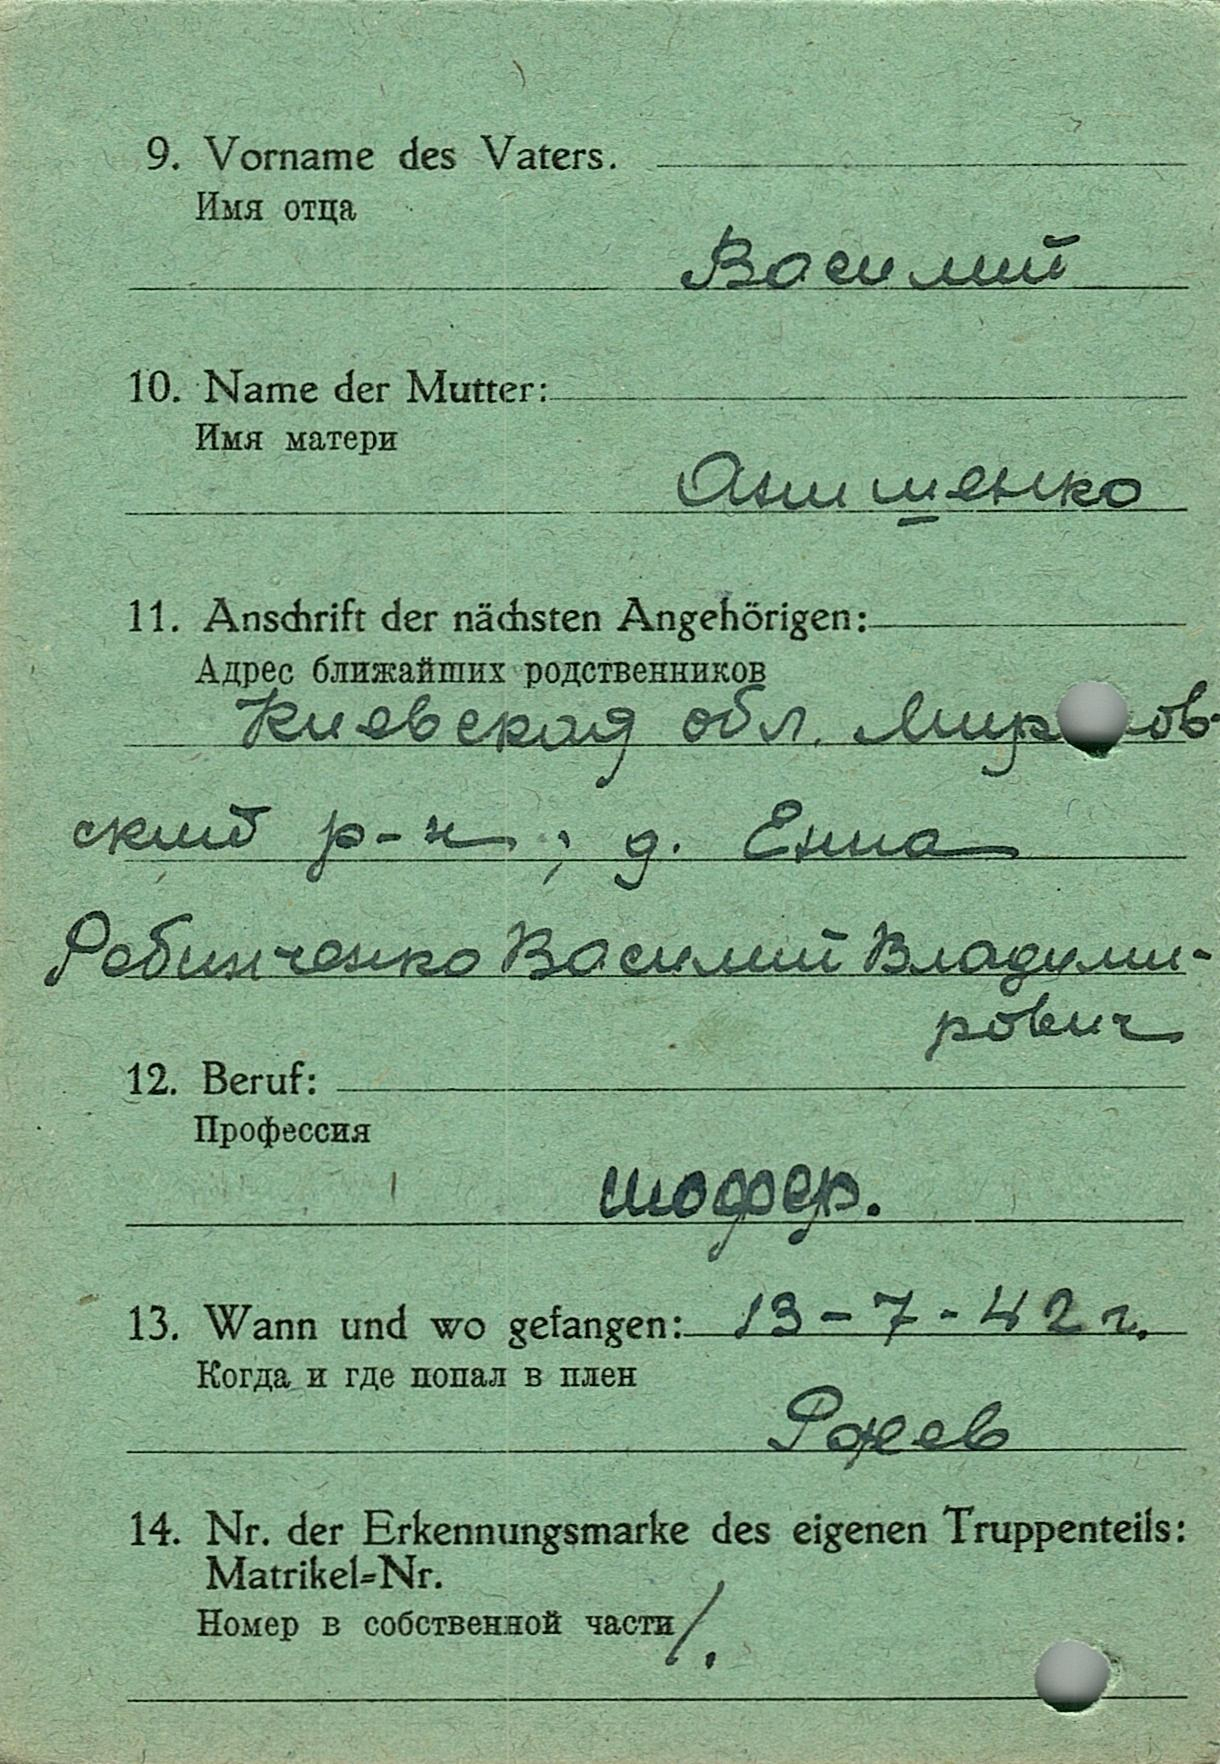 9. Vorname des Vaters.
Имя отца
Василий
10. Name der Mutter:
Имя матери
Анишенко
11. Anschrift der nächsten Angehörigen:
Адрес ближайших родственников
Киевская обл. Мироновский
ский р-н, д. Енна
Рабинченко Василий Владими-
рович
12. Beruf:
Профессия
шофер.
13. Wann und wo gefangen: 13-7-42 г.
Когда и где попал в плен
Ржев
14. Nr. der Erkennungsmarke des eigenen Truppenteils:
Matrikel=Nr.
Номер в собственной части /.